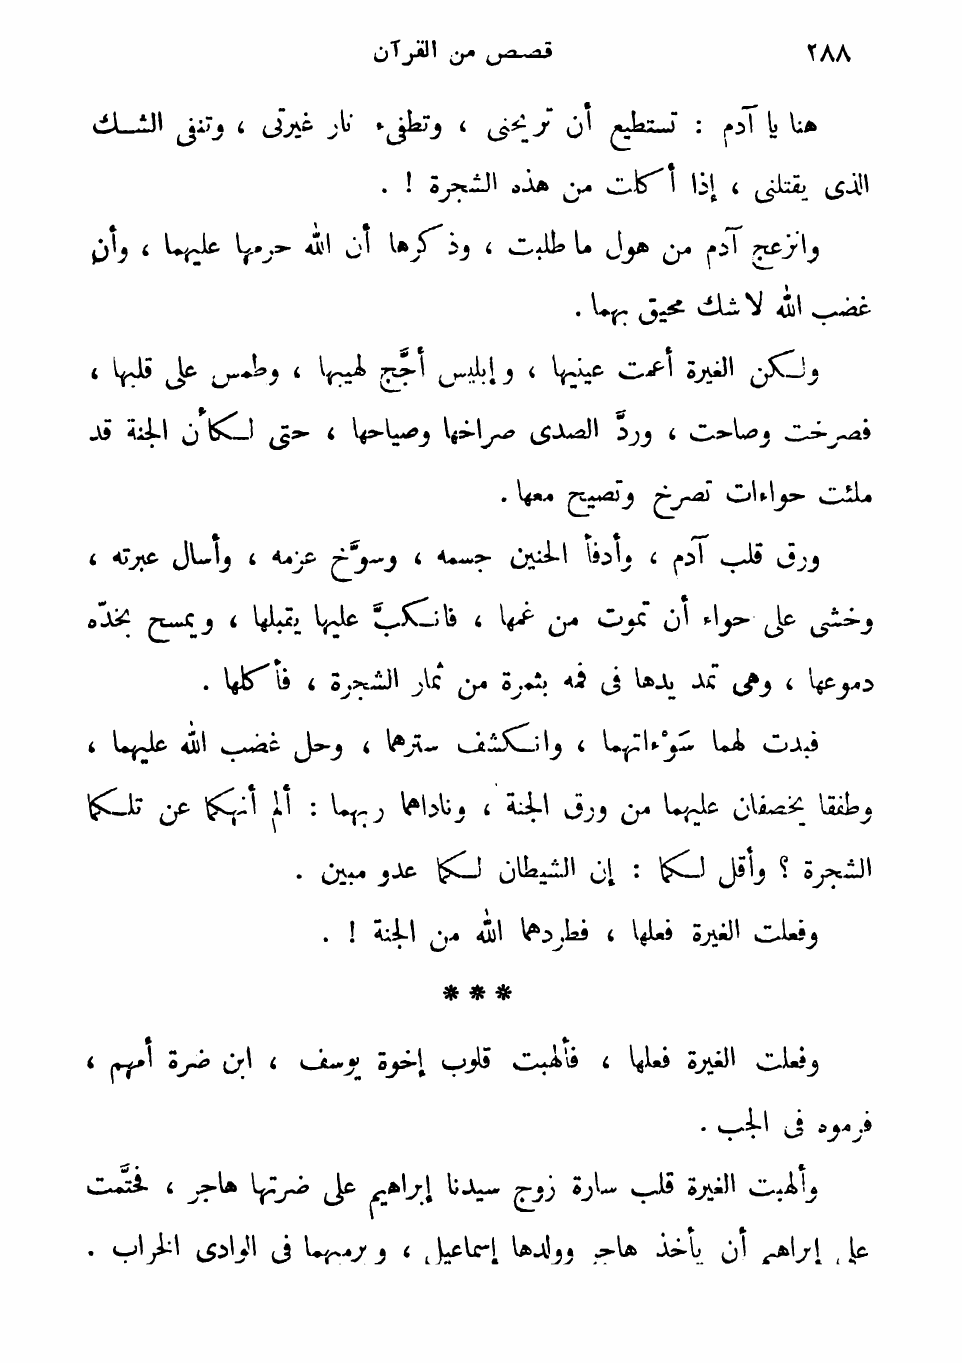 ٢٨٨
قصص من القرآن
هنا يا آدم : تستطيع أن تريحنى ، وتطفىء نار غيرتى ، وتنفى الشك
الذى يقتلنى ، إذا أكلت من هذه الشجرة ! .
وانزعج آدم من هول ما طلبت ، وذكرها أن الله حرمها عليهما ، وأن
غضب الله لا شك محيق بهما .
ولكن الغيرة أعمت عينيها ، وإبليس أجَّج لهيبها ، وطمس على قلبها ،
فصرخت وصاحت ، وردَّ الصدى صراخها وصياحها ، حتى لكأن الجنة قد
ملئت حواءات تصرخ وتصيح معها .
ورق قلب آدم ، وأدفأ الحنين جسمه ، وسوَّخ عزمه ، وأسال عبرته ،
وخشى على حواء أن تموت من غمها ، فانكبَّ عليها يقبلها ، ويمسح بخدّه
دموعها ، وهى تمد يدها فى فمه بثمرة من ثمار الشجرة ، فأكلها .
فبدت لهما سَوْءاتهما ، وانكشف سترهما ، وحل غضب الله عليهما ،
وطفقا يخصفان عليهما من ورق الجنة ، وناداهما ربهما : ألم أنهكما عن تلكما
الشجرة ؟ وأقل لكما : إن الشيطان لكما عدو مبين .
وفعلت الغيرة فعلها ، فطردهما الله من الجنة ! .
* * *
وفعلت الغيرة فعلها ، فألهبت قلوب إخوة يوسف ، ابن ضرة أمهم ،
فرموه فى الجب .
وألهبت الغيرة قلب سارة زوج سيدنا إبراهيم على ضرتها هاجر ، فحتَّمت
على إبراهيم أن يأخذ هاجر وولدها إسماعيل ، ويرميهما فى الوادى الخراب .